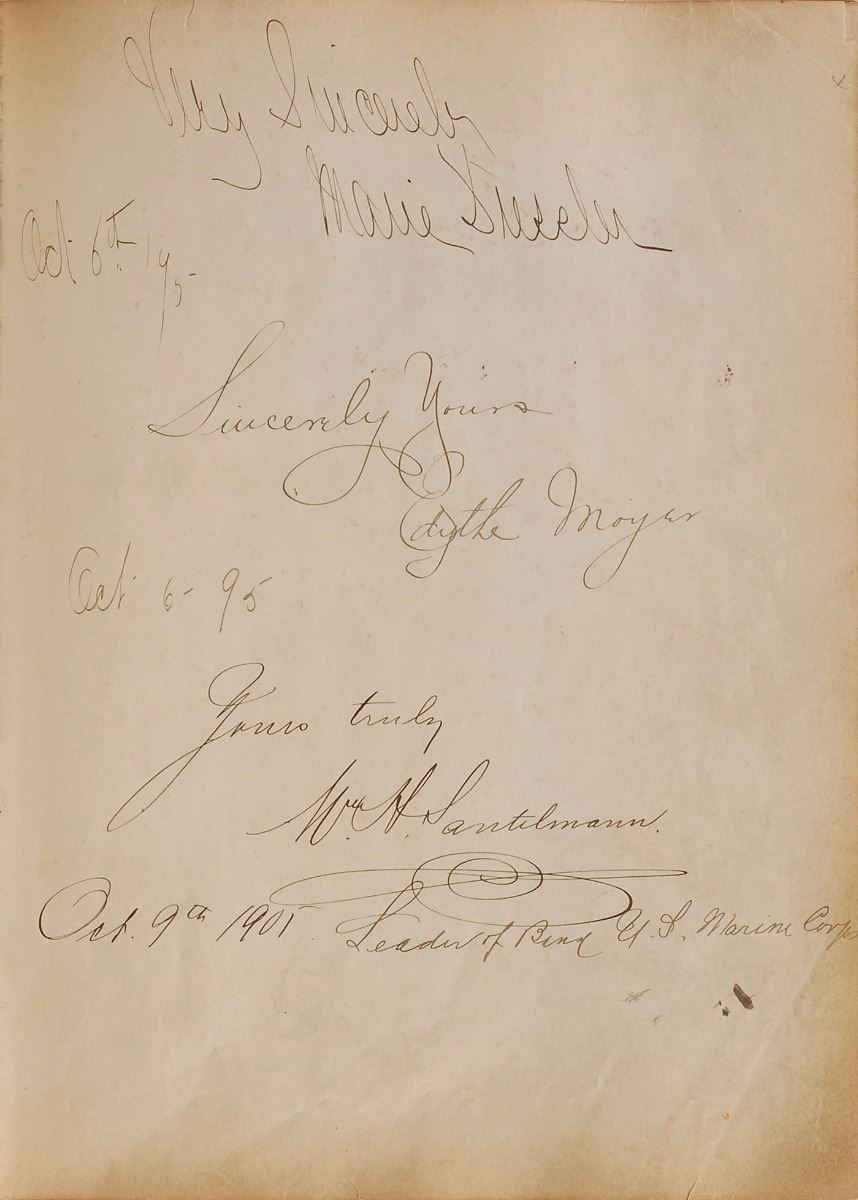 Very Sincerely
Marie Dressler
Oct 6th /95
Sincerely Yours
Edythe Moyer
Oct 6- 95
Yours truly
Wm. H. Santelmann.
Oct. 9th 1901. Leader of Band U. S. Marine Corps